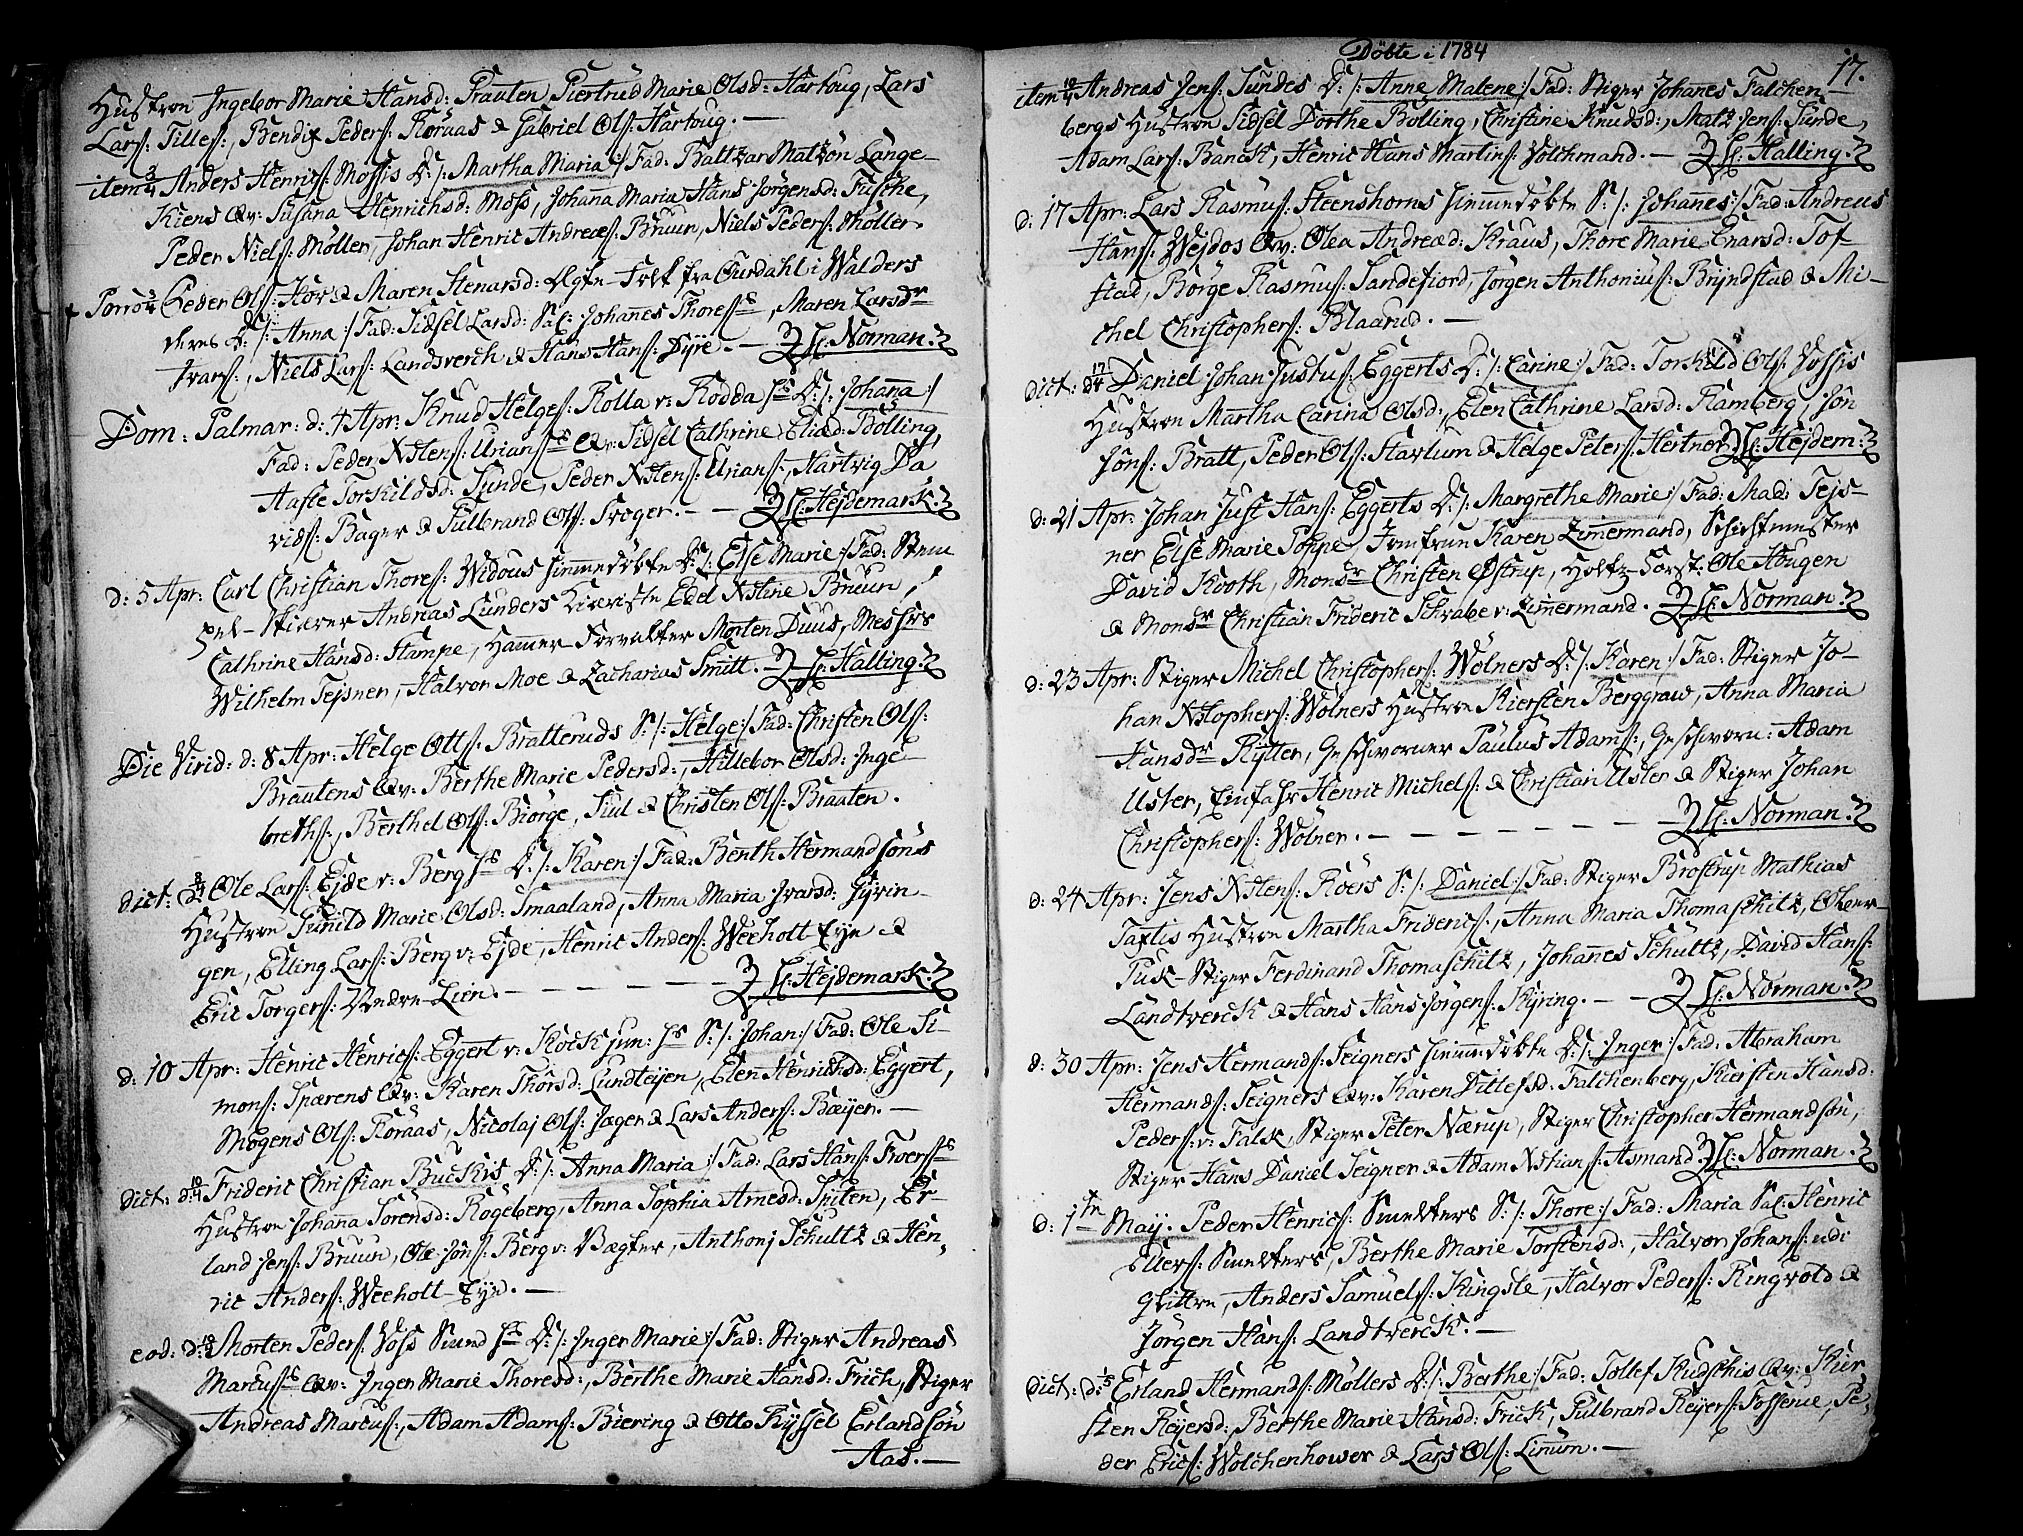 Hustroe Ingebor Marie Hansd: Braaten Siertrud Marie Olsd: Hartoug, Lars
Lars: Tilless:, Bendix Peders: Koraas & Gabriel Ols: Hartoug. —
item 3/4 Anders Henrics: Mossis D:/: Martha Maria :/ Fad: Baltzar Matzøn Lange-
Kiens Qv: Susana Henrichsd: Moss, Johanna Maria Hans Jørgensd: Fusche,
Peder Niels: Møller, Johan Henric Andreæs: Bruun, Niels Peders: Møller.
Porrò 3/4 Peder Ols: Hov & Maren Stenarsd: Ægte-Folk fra Aurdahl i Walders
deres D:/: Anna :/ Fad: Sidsel Larsd: Sal: Johannes Thoress:, Maren Larsdr
Ivars:, Niels Lars: Landsverch & Hans Hans: Dyre. — H: Norman.
Dom: Palmar: d: 4 Apr: Knud Helges: Kolla v: Kodda hs D:/: Johana :/
Fad: Peder Xstens: Urianss Qv: Sidsel Cathrine Eliæd: Bolling,
Aaste Torkildsd: Sunde, Peder Xstens: Urians:, Hartvig Da
vids: Bager & Gulbrand Ols: Troger. — — H: Hejdemark.
d: 5 Apr: Carl Christian Thores: Widous hiemmedøbte D:/: Else Marie :/ Fad: Stem
pel-Skiærer Andreas Lunders Kieriste Edel Xstine Bruun,
Cathrine Hansd: Stampe, Hamer Forvalter Morten Duus, Messrs
Wilhelm Tejsner, Halvor Moe & Zacharias Smitt. — H: Halling.
Die Virid: d: 8 Apr: Helge Otts: Bratteruds S:/: Helge :/ Fad: Christen Ols:
Braatens Qv: Berthe Marie Pedersd:, Hillebor Olsd: Inge-
breths:, Berthel Ols: Biørge, Juul & Christen Ols: Braaten.
dict: d 8/4 Ole Lars: Ejde v: Berg hs D:/: Karen :/ Fad: Benth Hermandsøns
Hustroe Gunild Marie Olsd: Smaaland, Anna Maria Ivarsd: Gyrin-
gen, Elling Lars: Berg v: Ejde, Henric Anders: Weeholt-Eye &
Eric Torgers: Vedre-Lien. — — — — — H: Hejdemark.
d: 10 Apr: Henric Henrics: Eggert v: Kock jun: hs S:/: Johan :/ Fad: Ole Si-
mons: Spærens Qv: Karen Thorsd: Lundteijen, Elen Henrichsd: Eggert,
Mogens Ols: Koraas, Nicolaj Ols: Jæger & Lars Anders: Bæyer. —
dict: d: 10/4 Frideric Christian Buckis D:/: Anna Maria :/ Fad: Lars Hans: Froerss
Hustroe Johana Sorensd: Kogeberg, Anna Sophia Arnesd: Spiten, Er-
land Jens: Bruun, Ole Jøns: Berg v: Vægter, Anthonj Schultz & Hen-
ric Anders: Weeholt-Eye. —
eod: d: 10/4 Morten Peders: Voss Sund hs D:/: Inger Marie :/ Fad: Stiger Andreas
Marcuss Qv: Inger Marie Thoresd:, Berthe Marie Hansd: Frich, Stiger
Andreas Marcus:, Adam Adams: Biering & Otto Ryssel Erlandsøn
Aas. —
Døbte i 1784
17.
item 10/4 Andreas Jens: Sundes D:/: Anne Malene :/ Fad: Stiger Johanes Falchen-
bergs Hustroe Sidsel Dorthe Bolling, Christine Knudsd:, Matz Jens: Sunde,
Adam Lars: Banck, Henric Hans Martins: Volchmand. — H: Halling.
d: 17 Apr: Lars Rasmus: Steenshorns hiemmedøbte S:/: Johannes :/ Fad: Andreas
Hans: Wejdos Qv: Olea Andreæd: Kraus, Thore Marie Enarsd: Tof-
stad, Børge Rasmus: Sandefiord, Jørgen Anthonius: Bryndstad & Mi-
chel Christophers: Blaarud. —
dict: d 17/4 Daniel Johan Justus: Eggerts D:/: Carine :/ Fad: Torkild Ols: Vossis
Hustroe Martha Carina Olsd:, Elen Cathrine Larsd: Ramberg, Jon
Jøns: Bratt, Peder Ols: Stavlum & Helge Peters: Hertner H: Hejdem:
d: 21 Apr: Johan Just Hans: Eggerts D:/: Margrethe Marie :/ Fad: Mad: Tejs-
ner Else Marie Poppe, Jomfrue Karen Zimermand, Schichtmester
David Kooth, Monsr Christen Østrup, Holtz-Forst: Ole Hougen
& Monsr Christian Frideric Schrabe v: Zimermand. H: Norman.
d: 23 Apr: Stiger Michel Christophers: Wølners D:/: Karen :/ Fad: Stiger Jo-
han Xstophers: Wølners Hustroe Kiersten Berggraw, Anna Maria
Hansdr Rytter, Geschworner Paulus Adams:, Geschworn: Adam
Uster, Einfahr Henric Michels: & Christian Uster & Stiger Johan
Christophers: Wølner. — — — — — — — H: Norman.
d: 24 Apr: Jens Xstens: Roers S:/: Daniel :/ Fad: Stiger Brostrup Mathias
Taxtis Hustroe Martha Friderics:, Anna Maria Thomaschitz, Ober-
Puk-Stiger Ferdinand Thomaschitz, Johannes Schultz, David Hans:
Landtverck & Hans Hans Jørgens: Kyring. — — H: Norman.
d: 30 Apr: Jens Hermands: Seigners hiemmedøbte D:/: Inger :/ Fad: Abraham
Hermands: Seigners Qv: Karen Ditlefsd: Falchenberg, Kiersten Hansd:
Peders: v: Falk, Stiger Peter Nærup, Stiger Christopher Hermandsøn,
Stiger Hans Daniel Seigner & Adam Xstians: Asmand H: Norman.
d: 1te Maij. Peder Henrics: Smelters S:/: Thore :/ Fad: Maria Sal: Henric
Ellers: Smelters, Berthe Marie Torstensd:, Halvor Johans: udi
Glitten, Anders Samuels: Kingsle, Halvor Peders: Ringvold &
Jørgen Hans: Landtverck. —
dict: d: 1/5 Erland Hermands: Møllers D:/: Berthe :/ Fad: Tollef Kudschis Qv: Kier
sten Reyersd:, Berthe Marie Hansd: Frick, Gulbrand Reyers: Fosserue, Pe-
der Erics: Wolchenhower & Lars Ols: Linum. —